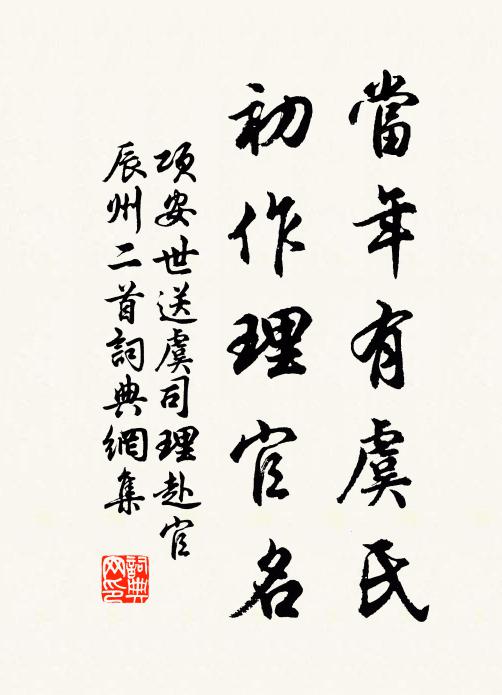 當年有虞氏
初作理官名
項安世送虞司理赴官
辰州二首詞典網集
詞典
网印